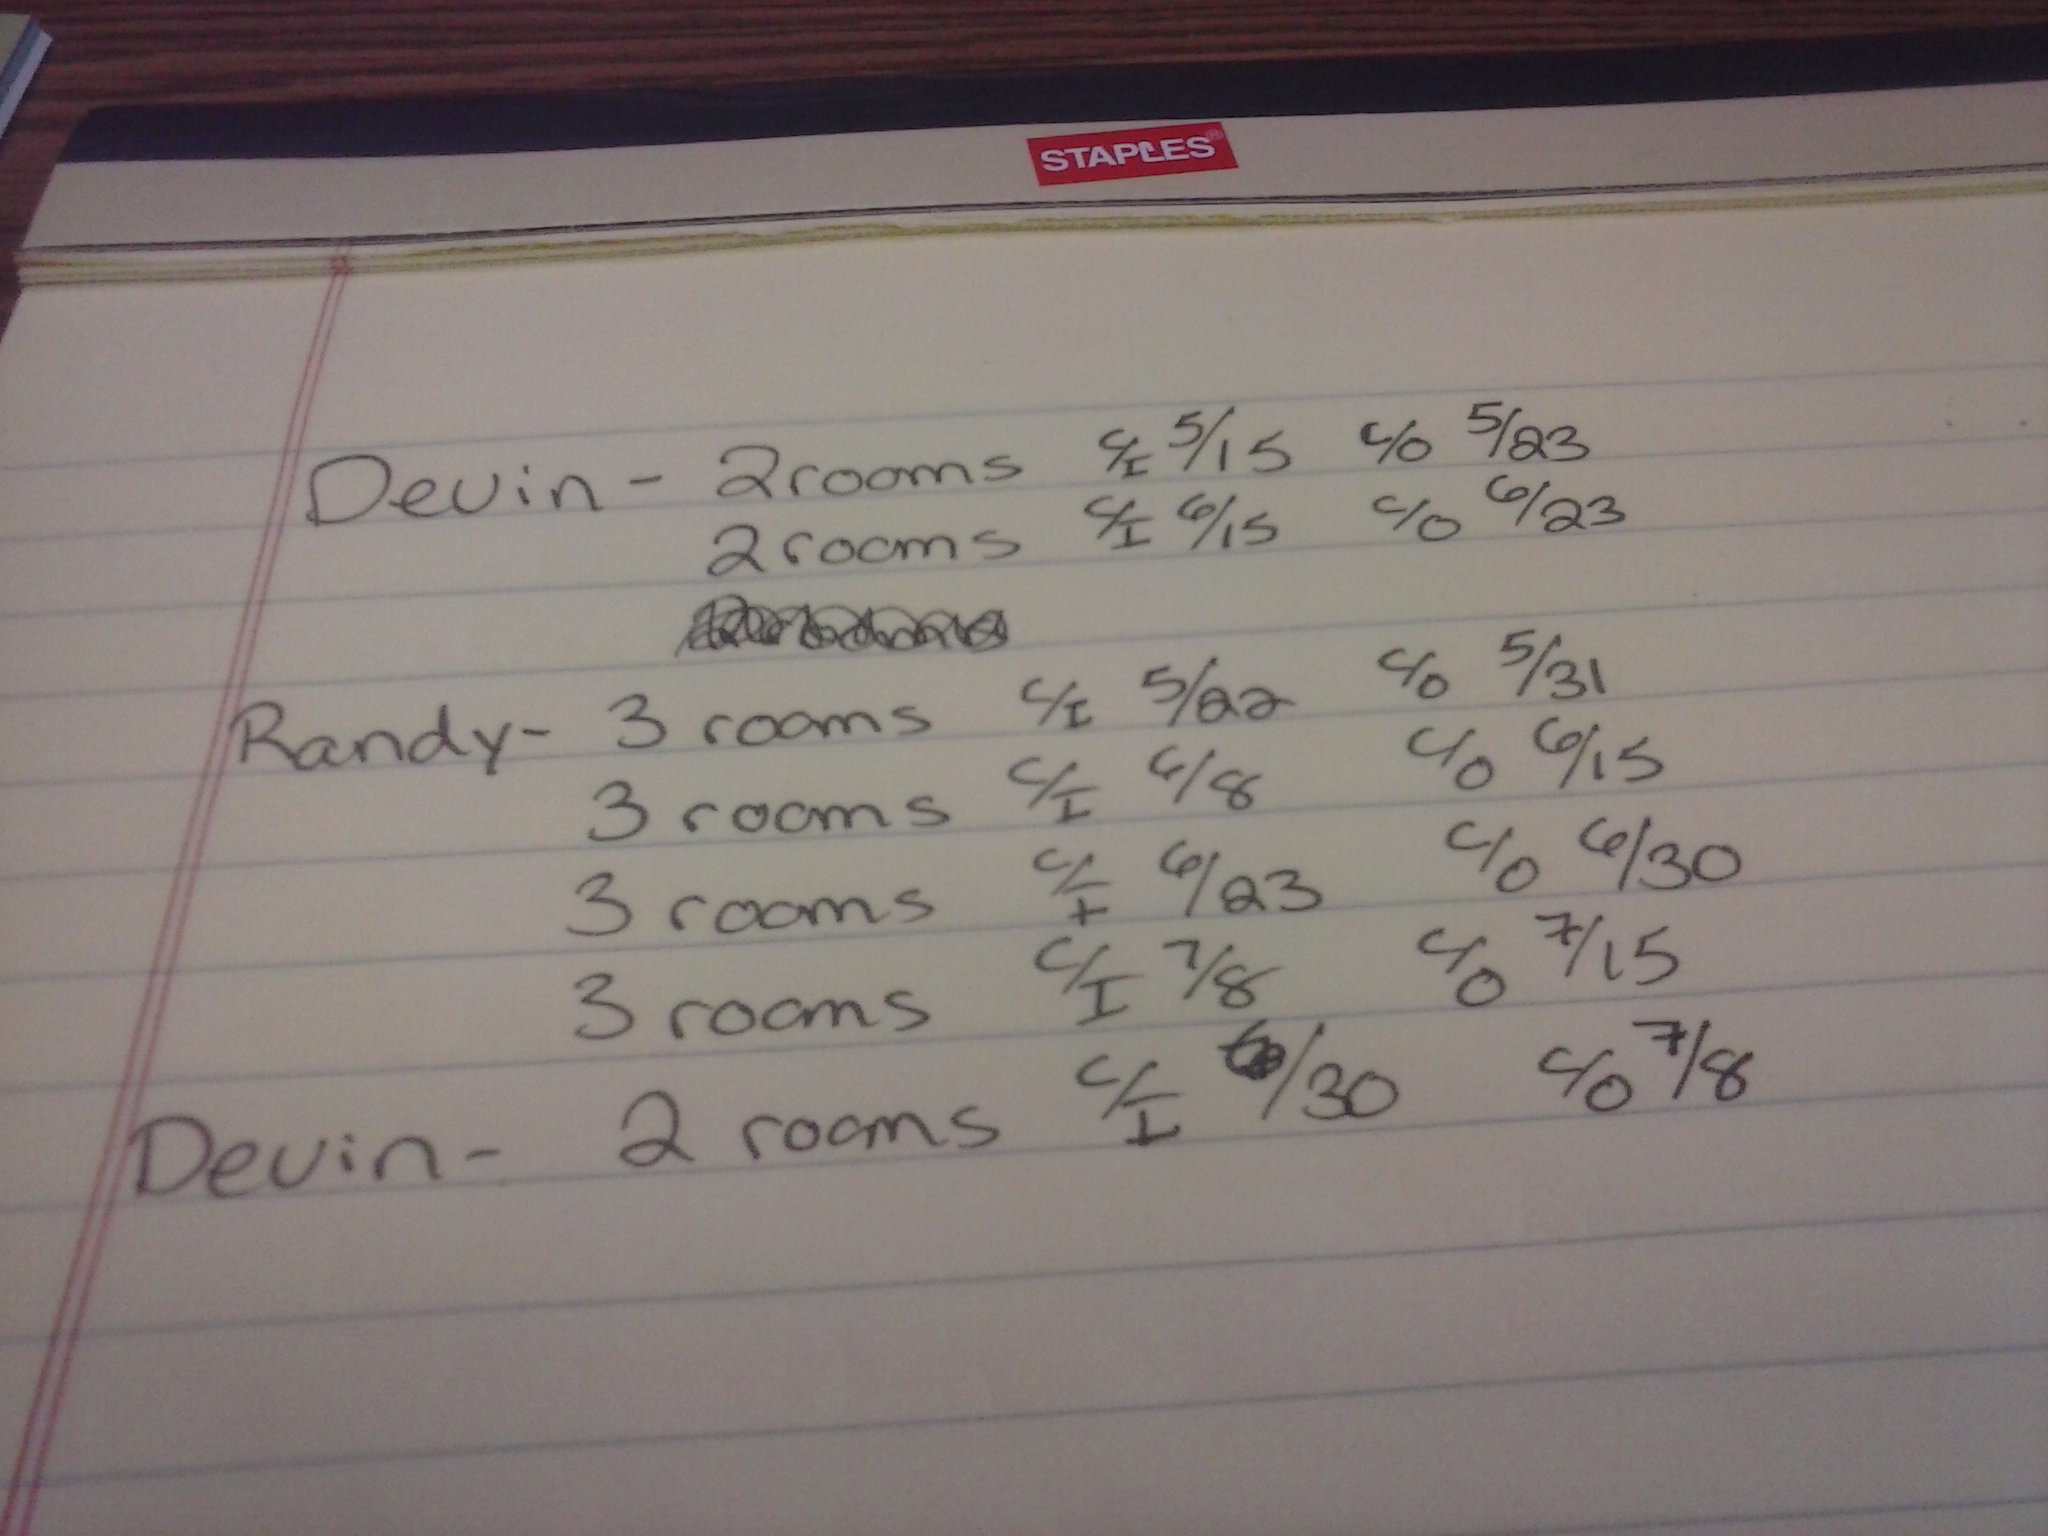 STAPLES®
Devin - 2 rooms C/I 5/15 C/O 5/23
2 rooms C/I 6/15 C/O 6/23
Randy - 3 rooms C/I 5/22 C/O 5/31
3 rooms C/I 6/8 C/O 6/15
3 rooms C/I 6/23 C/O 6/30
3 rooms C/I 7/8 C/O 7/15
Devin - 2 rooms C/I 6/30 C/O 7/8